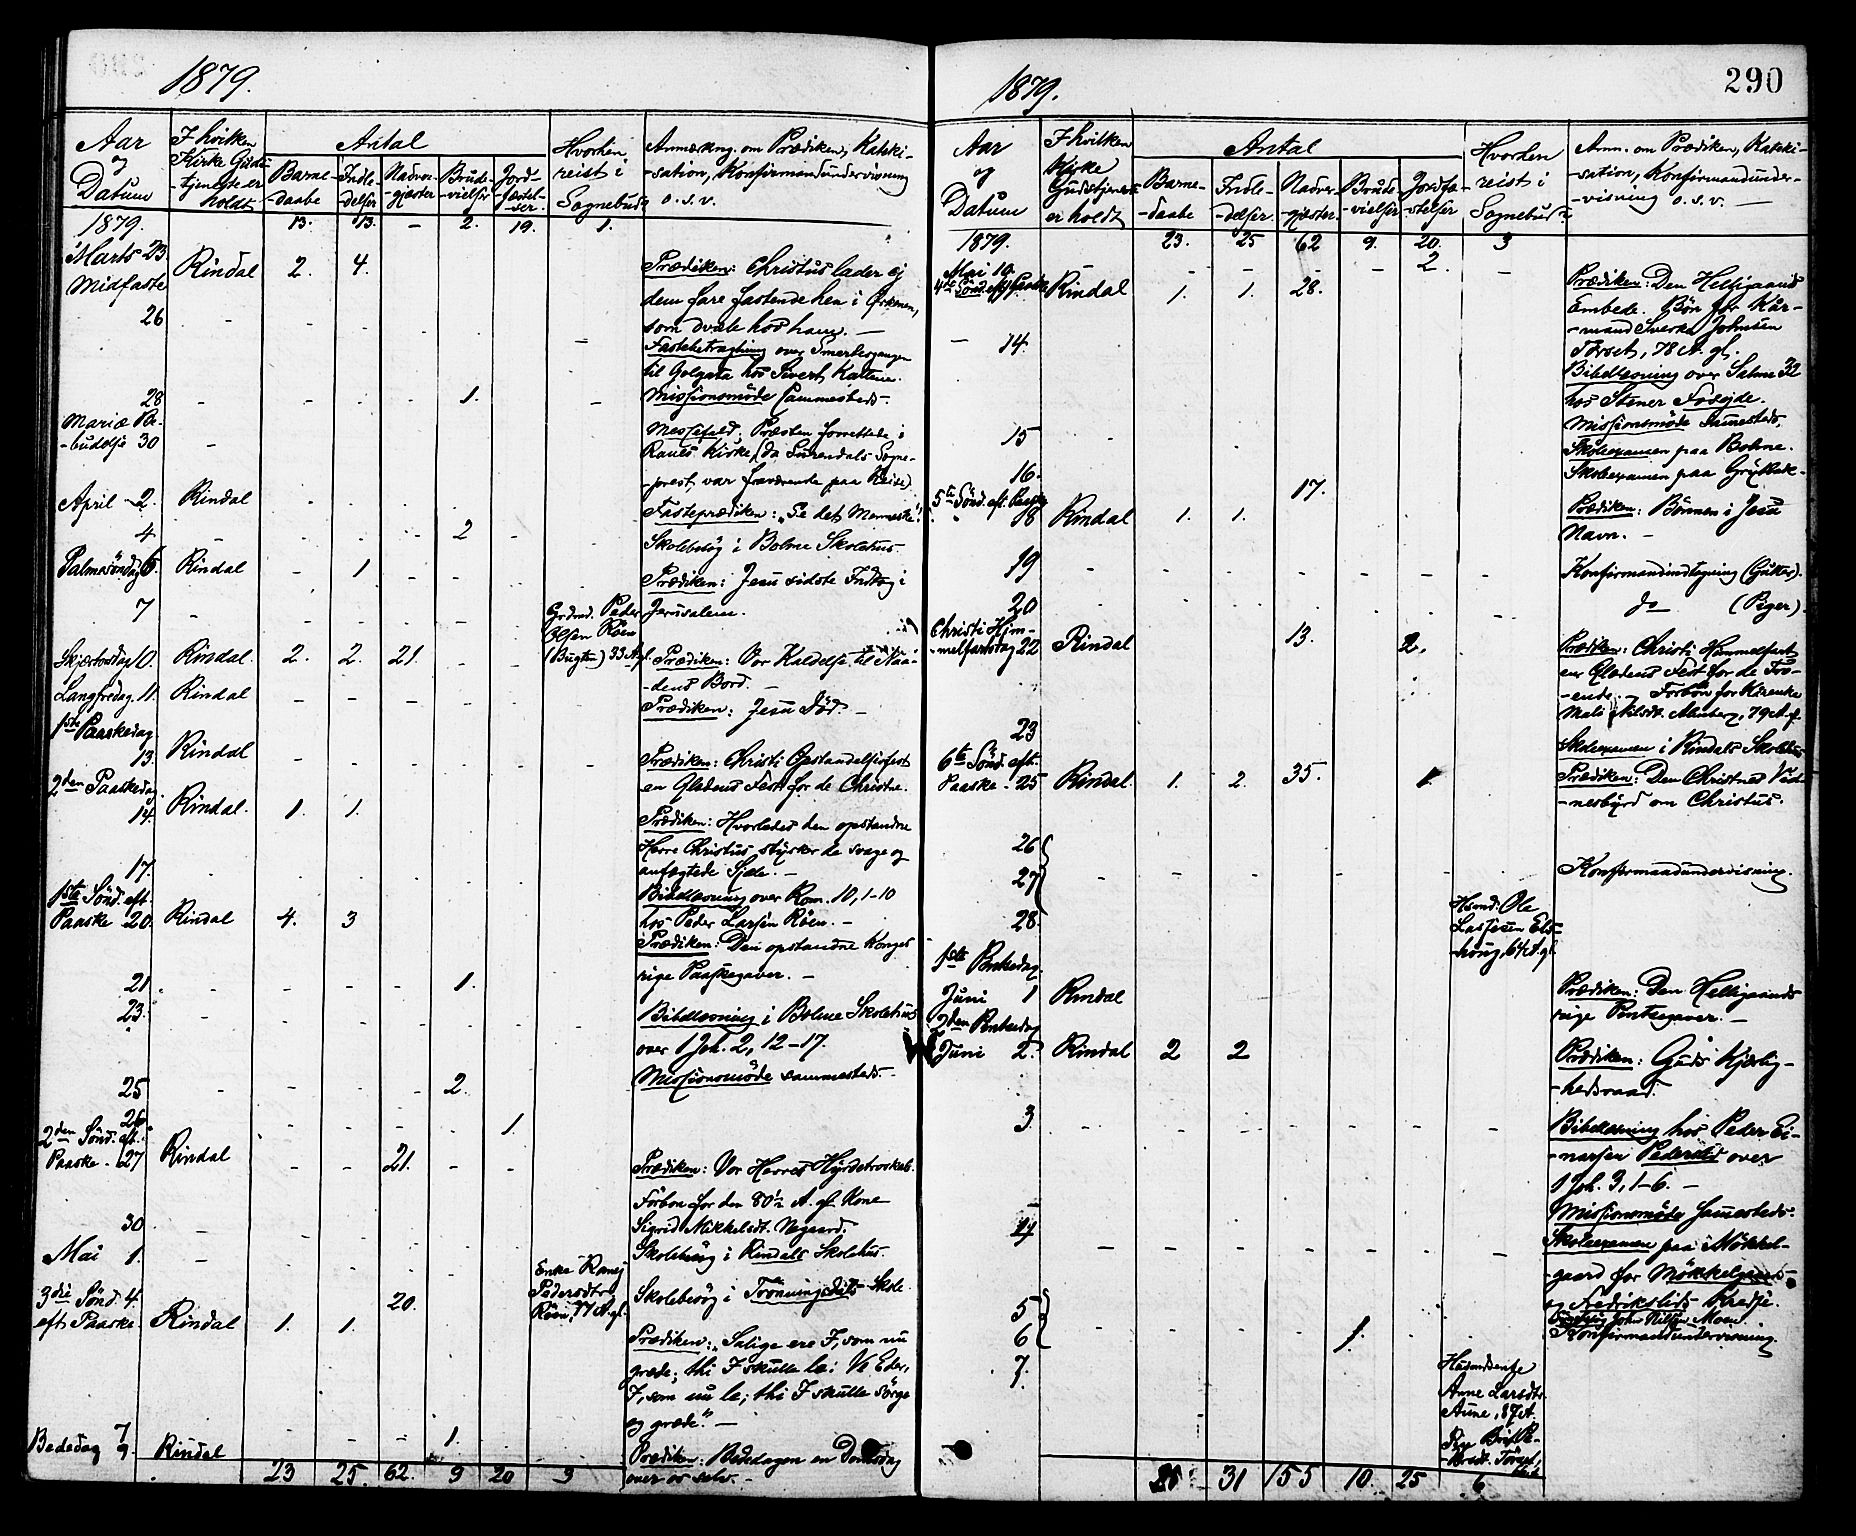 1879.
Aar og Datum
I hvilken Kirke Guds-tjeneste er holdt
Antal
Barne-daabe
Indle-delser
Nadver-gjæster
Brude-vielser
Jord-fæstel-ser
Hvorhen reist i Sognebud?
Anmærkng. om Prædiken, Kateki-
-sation, Konfirmandundervisning
o. s. v.
1879. 13. 13. - 2. 19. 1.
Marts 23 Rindal 2. 4.
Midfaste
Prædiken: Christus lader ej
dem fare fastende hen i Ørkenen,
som dvæle hos ham. —
26
Fastebetragtning over Smertesgangen
til Golgata hos Sivert
28 1.
Missionsmöde sammesteds.
Mariæ Be-
-budelse 30
Messefald. Præsten forrettede i
Ranes Kirke, (da Surendals Sogne-
-prest var fraværende paa Reise)
April 2. Rindal
Fasteprædiken: "Se det Menneske"!
4 2
Skolebesøg i Bolme Skolehus.
Palmesöndag 6. Rindal - 1.
Prædiken: Jesu sidste Indtog i
Jerusalem.
7
Grdmd. Peder
Olsen Röen
33 A. gl.
Skjærtorsdag 10. Rindal. 2. 2. 21.
Prædiken: Vor Kaldelse til Naa-
-dens Bord. —
Langfredag. 11. Rindal
Prædiken: Jesu Död. —
1ste Paaskedag
13. Rindal
Prædiken: Christi Opstandelsesfest
en Glædens Fest for de Christne.
2den Paaskedag
14. Rindal. 1. 1.
Prædiken: Hvorledes den opstandne
Herre Christus styrker de svage og
anfægtede Sjæle. —
17.
Bibellæsning over Rom. 10, 1-10
hos Peder Larsen Röen. —
1ste Sönd. eft.
Paaske 20. Rindal 4. 3
Prædiken: Den opstandne Konges
rige Paaskegaver. —
21 1.
23.
Bibellæsning i Bolme Skolehus
over 1 Joh. 2, 12-17.
Missionsmöde sammesteds.
25 2.
26 1.
2den Sönd. eft.
Paaske. 27 Rindal 21.
Prædiken: Vor Herres Hyrdetroskab.
Forbøn for den 80½ A. gl. Kone
Sigrid Mikkelsdt. Negaard.
30
Skolebesøg i Rindals Skolehus.
Mai 1.
Enke
Pedersdtr.
Röen, 77 A. gl.
Skolebesøg i Skole.
3die Sönd. 4.
eft. Paaske. Rindal 1. 1. 20.
Prædiken: "Salige ere I, som nu
græde; thi I skulle le; Ve Eder,
I, som nu le; thi I skulle sörge
og græde." —
7 1.
Bededag 9. Rindal
Prædiken: Bededagen en Domsdag
over os selv. —
23 25. 62. 9 20 3
1879.
290
Aar og Datum
I hvilken Kirke Gudstjeneste er holdt
Antal
Barne-daabe
Indle-delser
Nadver-gjæster
Brude-vielser
Jordfæ-stelser
Hvorhen reist i Sognebud?
Anm. om Prædiken, Kateki-
-sation, Konfirmandunder-
-visning o. s. v. —
1879. 23. 25 62 9. 20. 3
Mai 10. 2.
4de Sönd. eft. Paaske Rindal 1. 1. 28.
Prædiken: Den Helligaands
Embede. Bön for Kår-
-mand Sverke Johnsen
Törset, 78 A. gl.
14.
Bibellæsning over Salme 32
hos Stener
Missionsmöde sammesteds.
15
Skoleexamen paa Bolme.
16.
Skoleexamen paa
5te Sönd. eft. Paaske
18 Rindal 1. 1. 17.
Prædiken: Bönnen i Jesu
Navn. —
19
Konfirmandindtegning (Gutter).
20
do (Piger).
Christi Him-
-melfartsdag 22 Rindal 13. 2.
Prædiken: Christi Himmelfart
en Glædens Fest for de Tro-
-ende. — Forbøn for Kårenke
Mali Nilsdt. 79 A. gl.
23
Skoleexamen i Rindals Skolehus
6te Sönd. eft.
Paaske. 25 Rindal. 1. 2. 35. 1.
Prædiken: Den Christnes Vid-
-nesbyrd om Christus.
26
27
Konfirmandundervisning.
28.
Husmd. Ole
Larsen Els-
-haug, 64 A. gl.
1ste Pintsedag.
Juni 1 Rindal
Prædiken: Den Helligaands
rige Pintsegaver. —
2den Pintsedag
Juni 2. Rindal 2 2
Prædiken: Guds Kjærlig-
-hedsraad.
3
Bibellæsning hos Peder Ei-
-narsen Pederslid over
1 Joh. 3, 1-6. —
Missionsmöde sammesteds.
4
Skoleexamen paa Møkkel-
-gaard for Møkkelgaards-
og Fredrikslids Kredse.
5
6 1.
Konfirmandundervisning.
7.
Husmdsenke
Anne Larsdtr.
Aune, 87 A.
31 155 10. 25 6